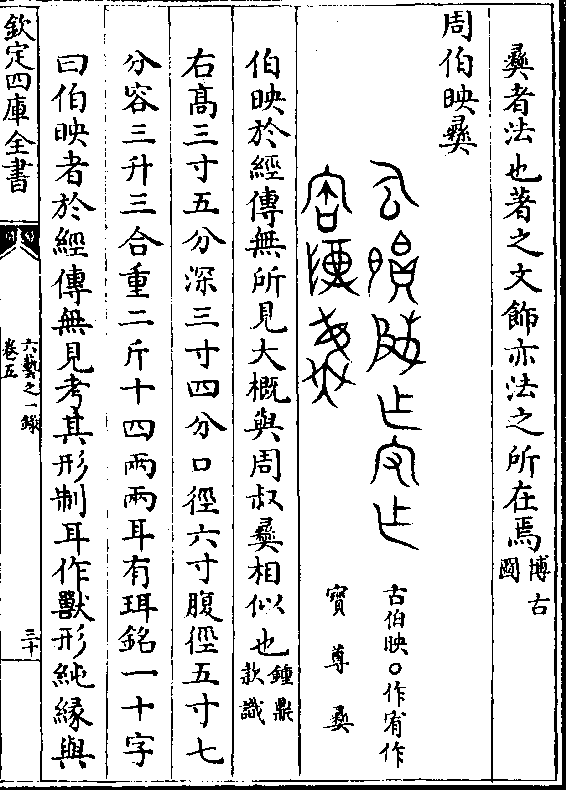 彞者法也著之文飾亦法之所在焉博古圖
周伯映彞
古伯映〇作宥作
寶尊彞
伯映於經傳無所見大概與周叔彞相似也鍾鼎款識
右髙三寸五分深三寸四分口徑六寸腹徑五寸七
分容三升三合重二斤十四兩兩耳有珥銘一十字
曰伯映者於經傳無見考其形制耳作獸形純縁與
欽定四庫全書
六藝之一錄
卷五
三十